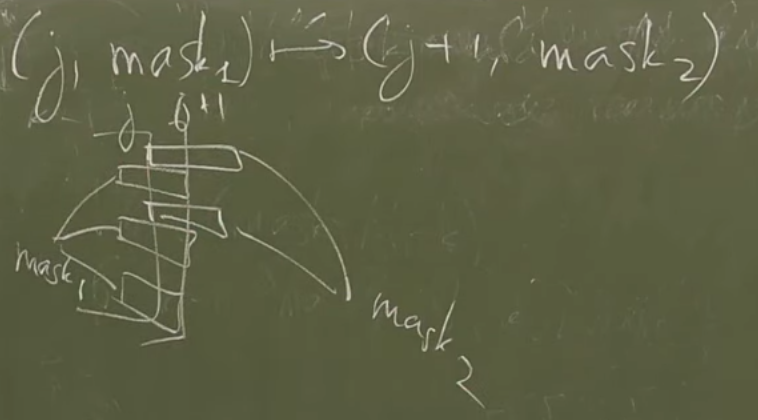 (j, mask₁) ↦ (j+1, mask₂)
j j+1
mask₁
mask₂